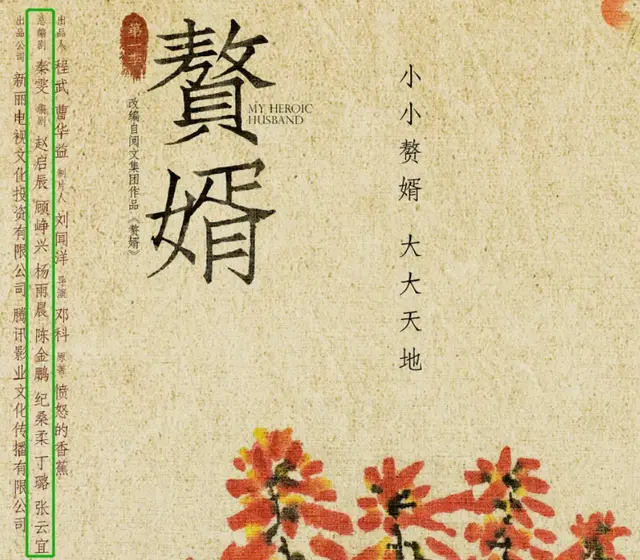 小小赘婿 大大天地
赘婿
MY HEROIC
HUSBAND
第一季
改编自阅文集团作品《赘婿》
出品人 程武 曹华益 制片人 刘闻洋 导演 邓科 原著 愤怒的香蕉
总编剧 秦雯 编剧 赵启辰 顾峥兴 杨雨晨 陈金鹏 纪桑柔 丁璐 张云宜
出品公司 新丽电视文化投资有限公司 腾讯影业文化传播有限公司